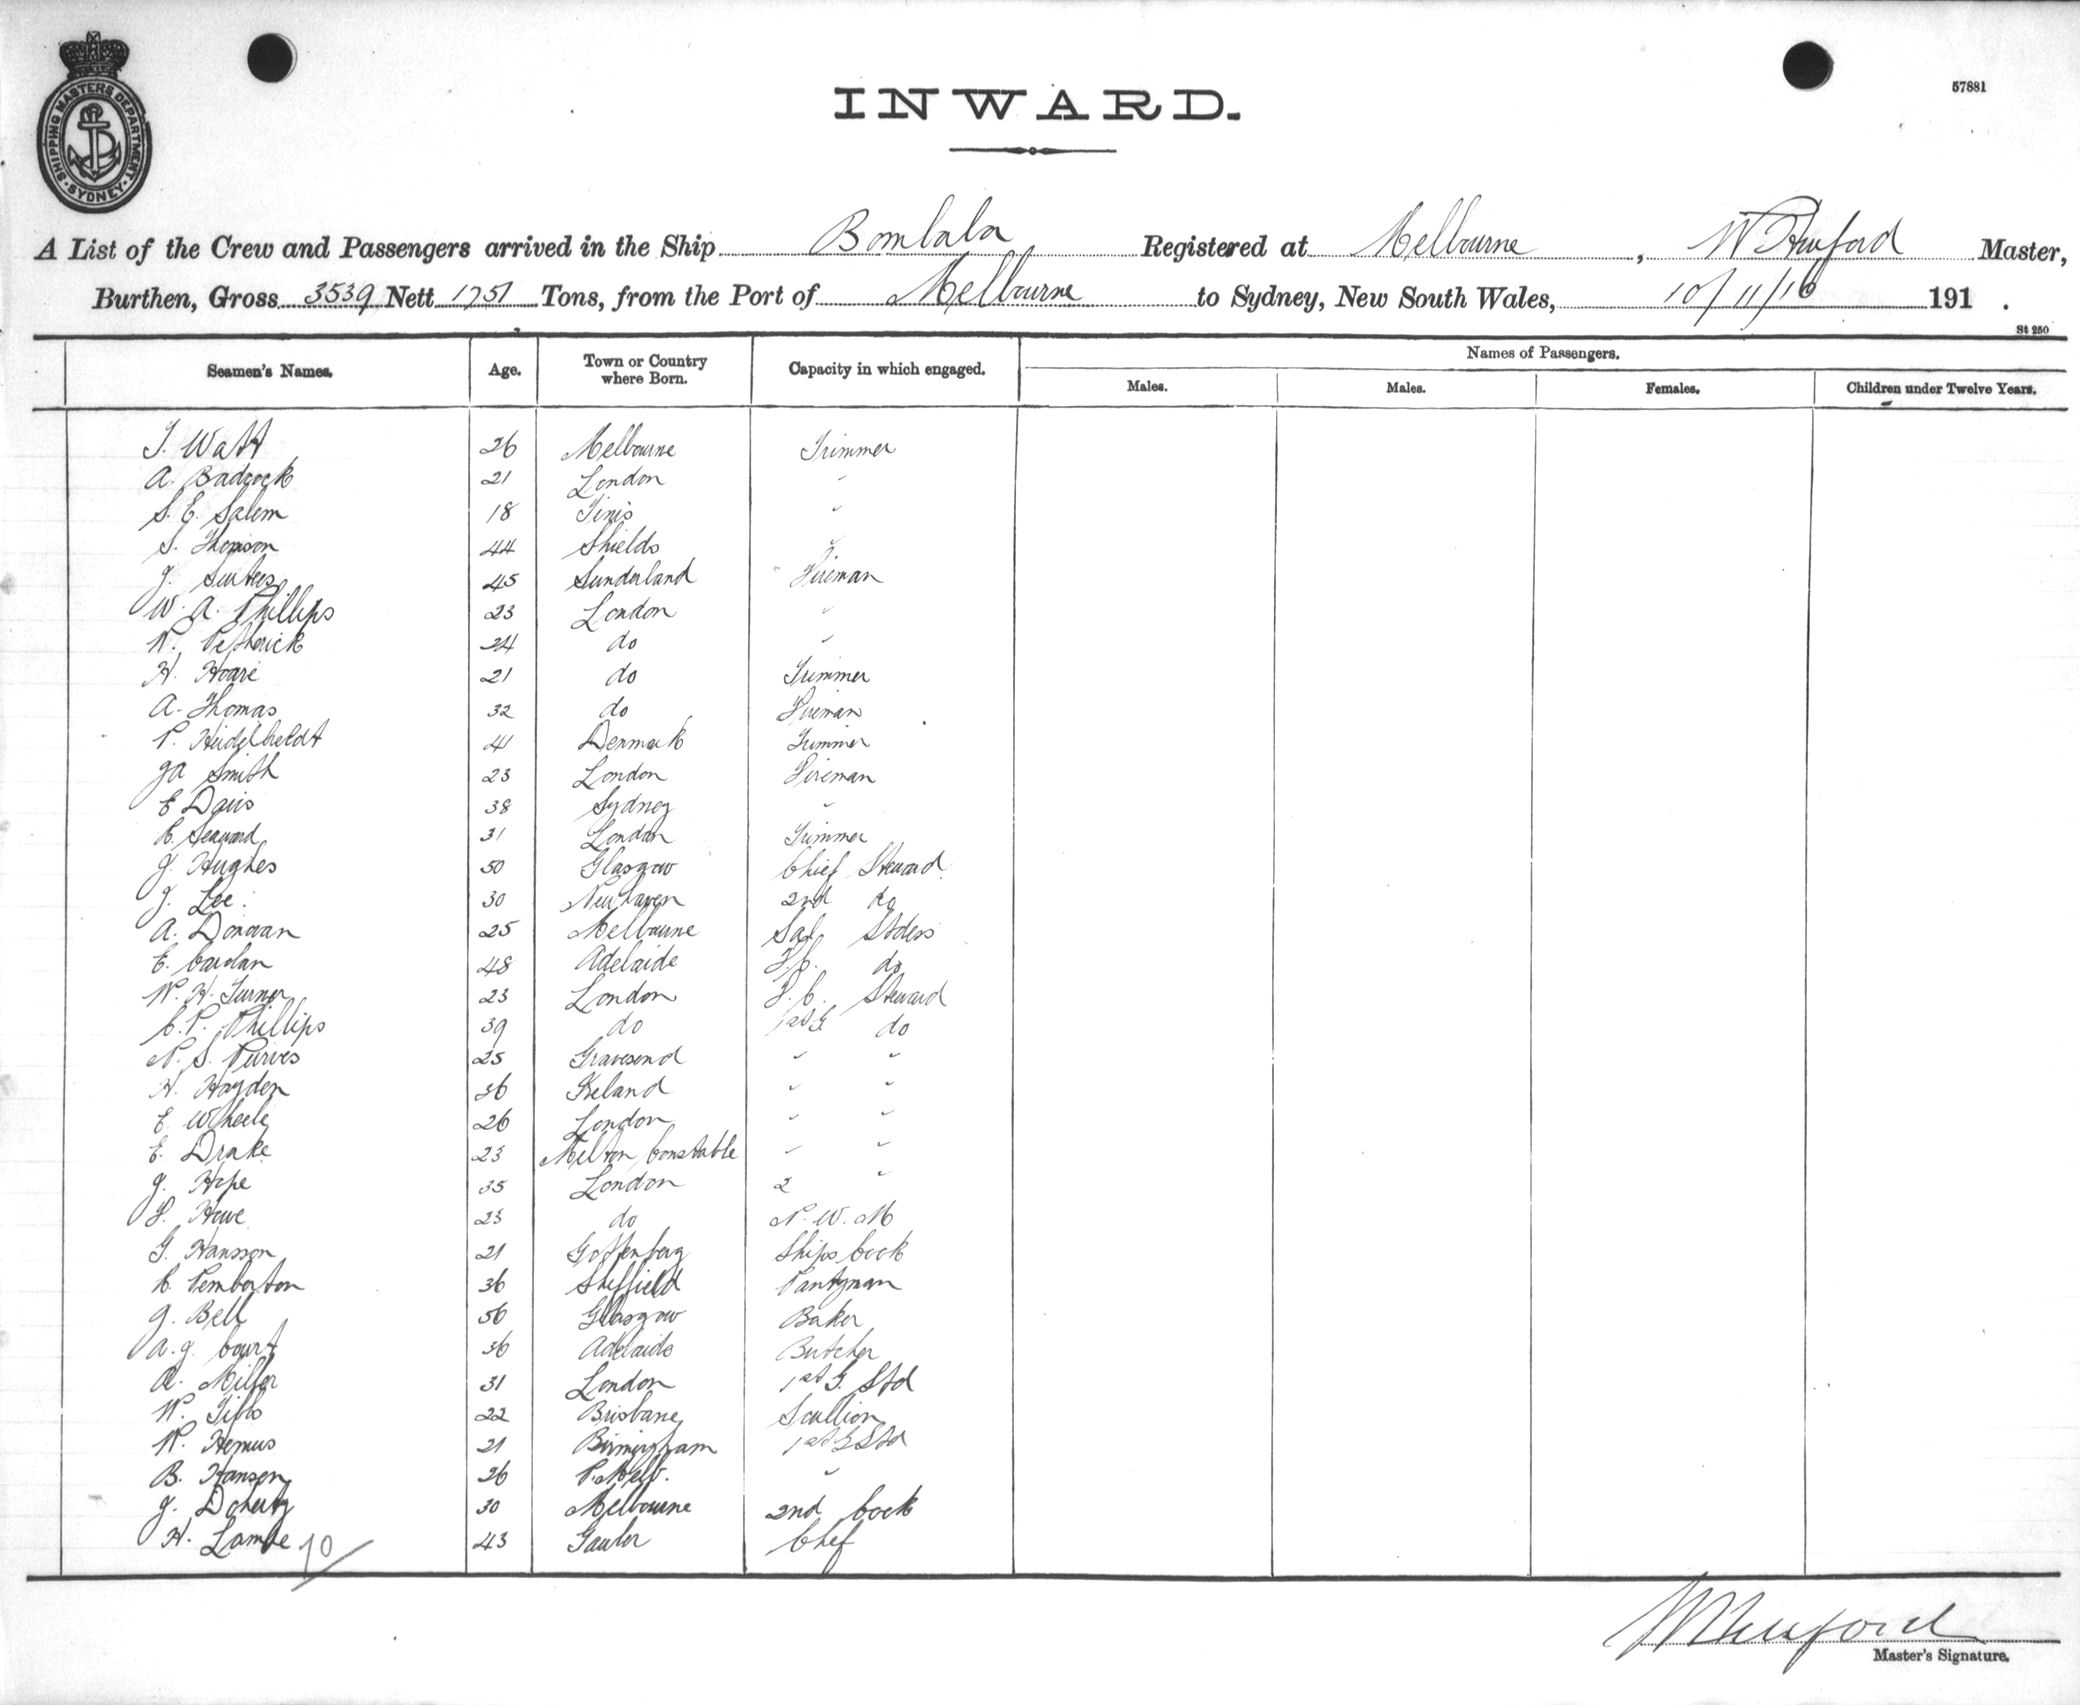 SHIPPING MASTERS DEPARTMENT · SYDNEY ·
57881
INWARD.
A List of the Crew and Passengers arrived in the Ship Bombala Registered at Melbourne, Master,
Burthen, Gross 3539 Nett 1751 Tons, from the Port of Melbourne to Sydney, New South Wales, 10/11/16 191 .
St 250
Seamen's Names. Age. Town or Country where Born. Capacity in which engaged. Names of Passengers.
Males. Males. Females. Children under Twelve Years.
T. Watt 26 Melbourne Trimmer
A. Badcock 21 London "
S. E. Salem 18 "
S. Thomson 44 Shields "
J. Surtees 45 Sunderland Fireman
W. A. Phillips 23 London "
W. Petherick 24 do "
H. Hoare 21 do Trimmer
A. Thomas 32 do Fireman
P. 41 Denmark Trimmer
J A Smith 23 London Fireman
E Davis 38 Sydney "
C. Seaward 31 London Trimmer
J. Hughes 50 Glasgow Chief Steward
J. Lee 30 Newhaven 2nd do
A. Donovan 25 Melbourne Sal Stdess
E. 48 Adelaide F.C. do
W. H. Turner 23 London F.C. Steward
C. P. Phillips 39 do 1st G. do
N. S. Purves 25 Gravesend " "
H. Hayden 36 Ireland " "
E. Wheele 26 London " "
E. Drake 23 Melton Constable " "
J. Hope 35 London 2 "
F. Howe 23 do N. W. M
G. Hansson 21 Gottenberg Ships Cook
C. Pemberton 36 Sheffield Pantryman
J. Bell 56 Glasgow Baker
A. J. Court 36 Adelaide Butcher
A. Miller 31 London 1st G. Std
W. Tibbs 22 Brisbane Scullion
W. Hemus 21 Birmingham 1st G Std
B. Hansen 26 P. Melb. "
J. Doherty 30 Melbourne 2nd Cook
H. Lambe 43 Gawler Chef
70/
Master's Signature.